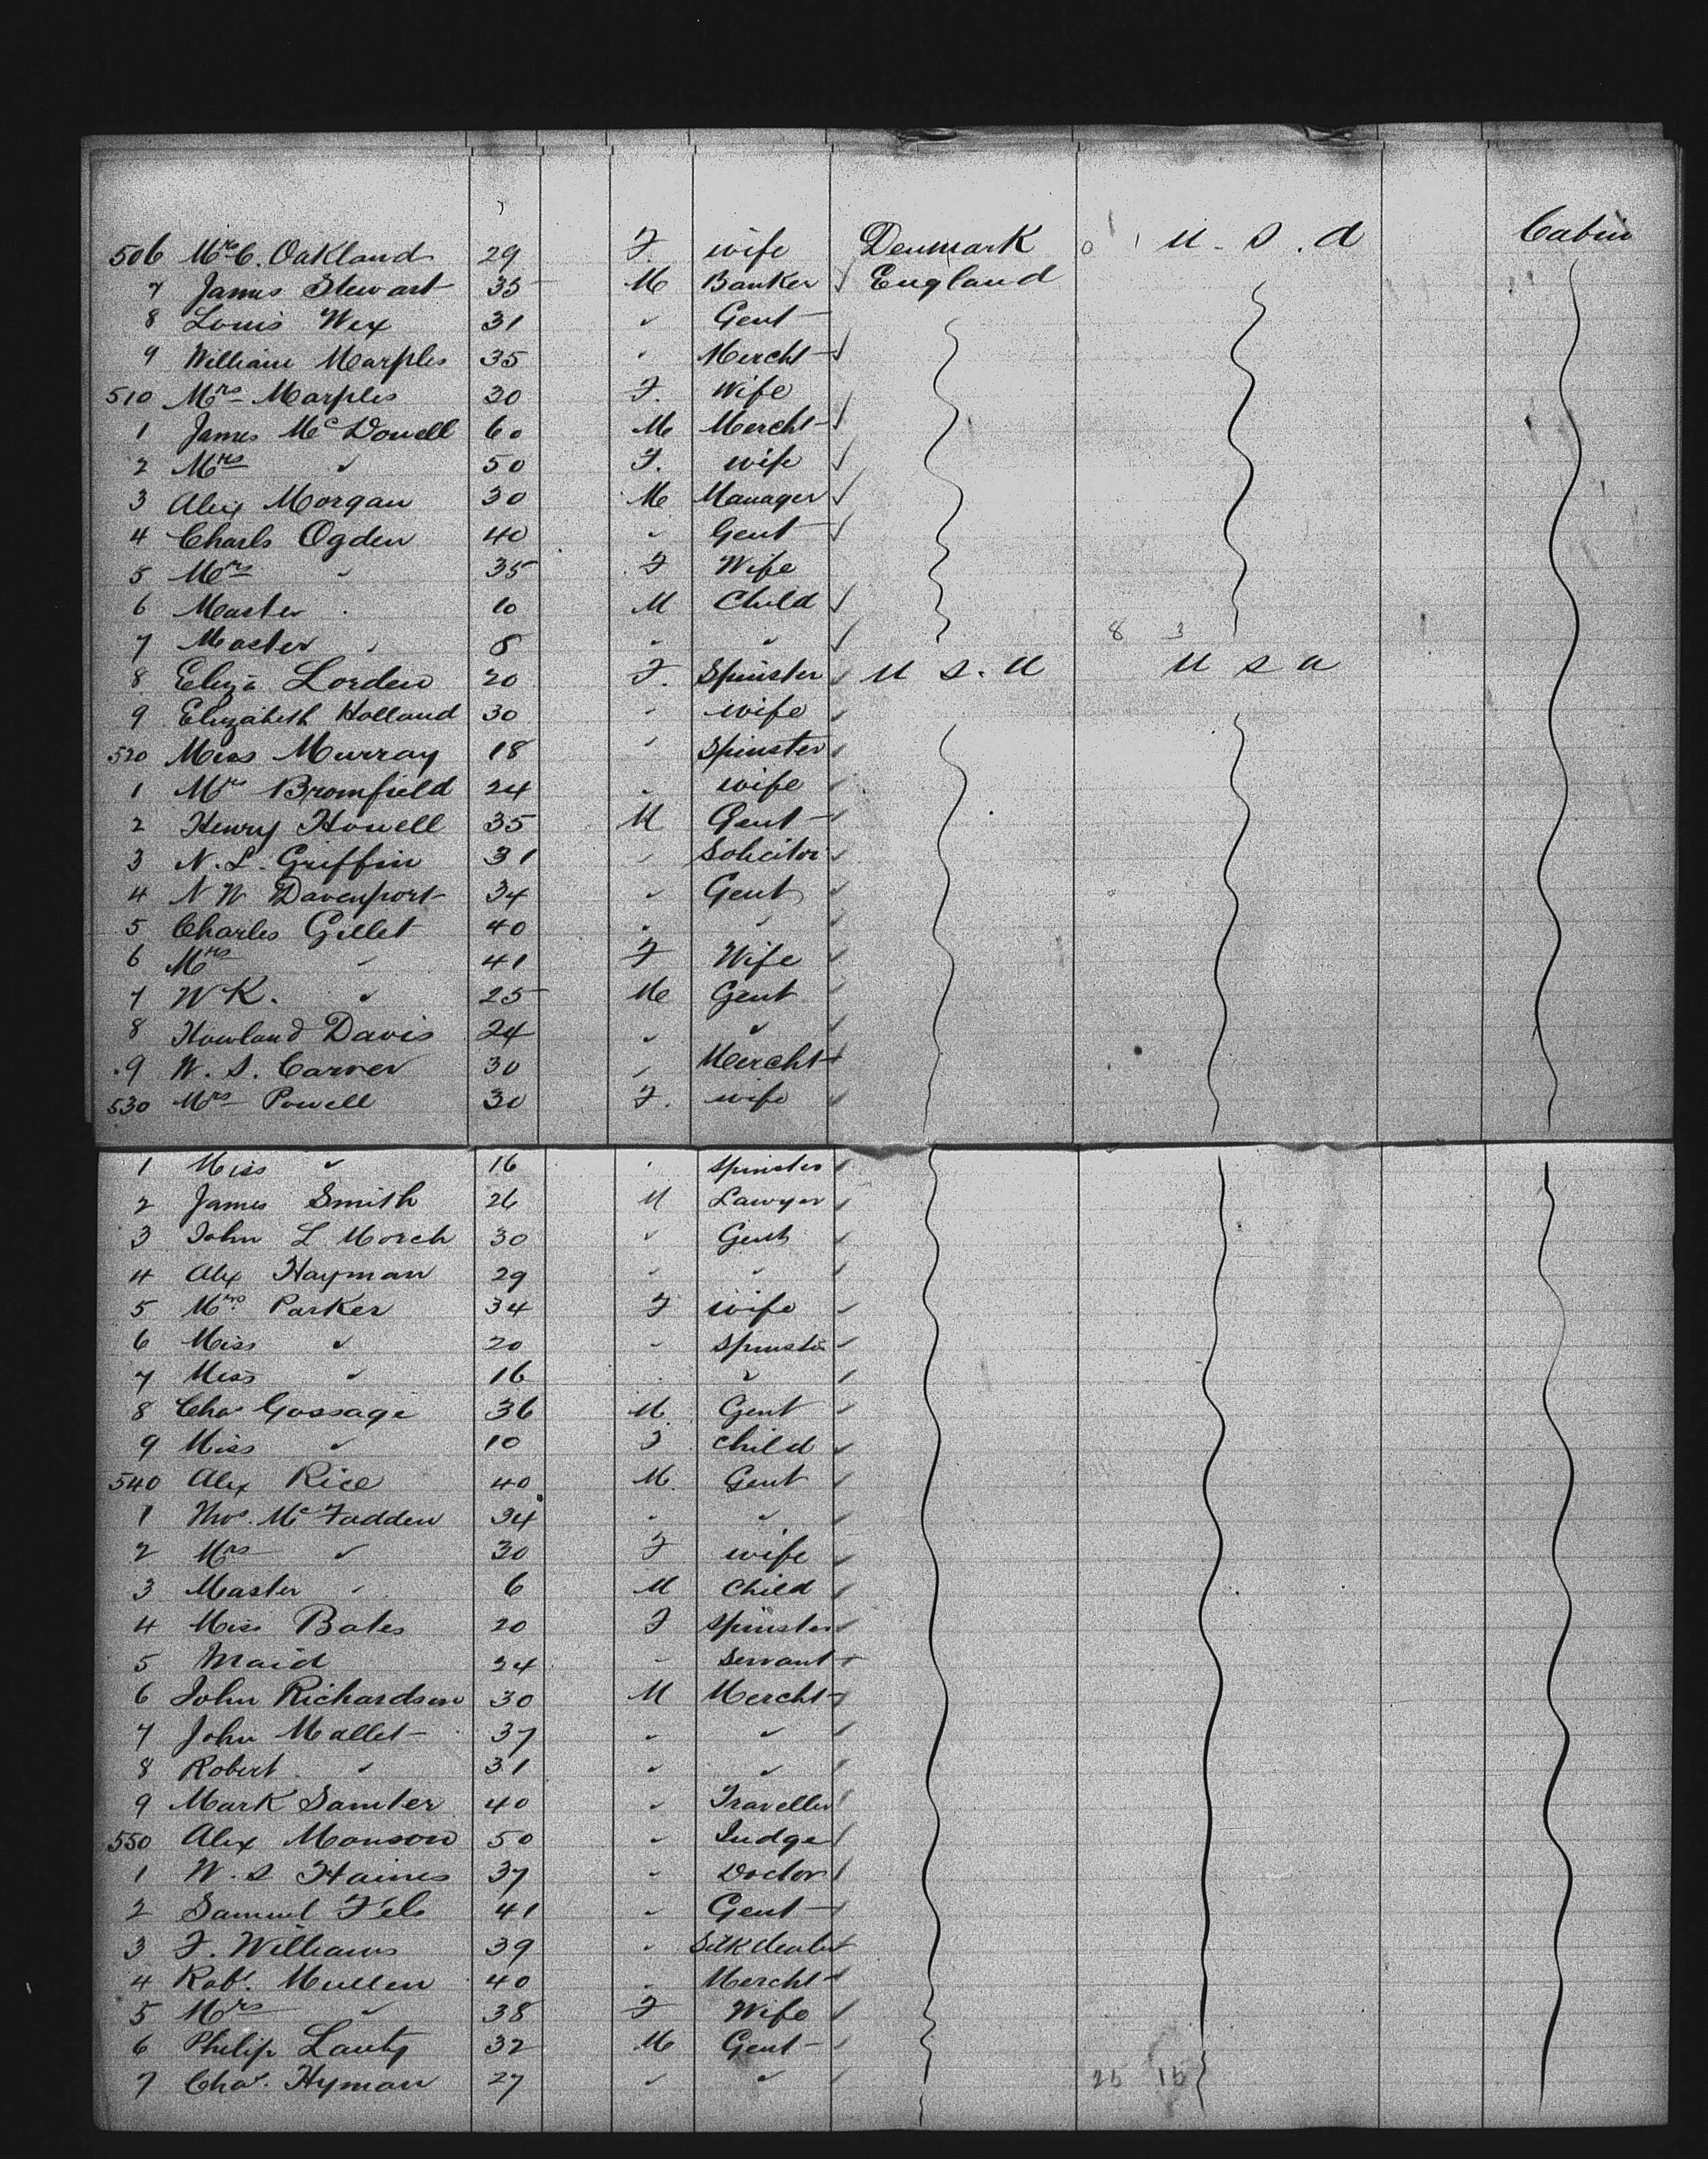 506 Mrs C. Oakland 29 F. wife Denmark 0 1 U. S. A Cabin
7 James Stewart 35 M Banker √ England
8 Louis Wex 31 " Gent
9 William Marples 35 " Mercht √
510 Mrs Marples 30 F. Wife
1 James McDowell 60 M Mercht √
2 Mrs " 50 F. wife √
3 Alex Morgan 30 M Manager √
4 Charls Ogden 40 " Gent √
5 Mrs " 35 F Wife
6 Master " 10 M Child √
7 Master " 8 " " √ 8 3
8 Eliza Lorden 20 F. Spinster U S. A U S A
9 Elizabeth Holland 30 " wife
520 Miss Murray 18 " Spinster
1 Mrs Bromfield 24 " wife
2 Henry Howell 35 M Gent
3 N. L. Griffin 31 " Solicitor
4 N W Davenport 34 " Gent
5 Charles Gillet 40 " "
6 Mrs " 41 F Wife
7 W K. " 25 M Gent
8 Howland Davis 24 " "
9 W. S. Carver 30 " Mercht
530 Mrs Powell 30 F. wife
1 Miss " 16 " Spinster
2 James Smith 26 M Lawyer
3 John L. Morch 30 " Gent
4 Alex Hayman 29 " "
5 Mrs Parker 34 F wife
6 Miss " 20 " Spinster
7 Miss " 16 " "
8 Chas Gossage 36 M. Gent
9 Miss " 10 F child
540 Alex Rice 40 M. Gent
1 Thos. McFadden 34 " "
2 Mrs " 30 F wife
3 Master " 6 M Child
4 Miss Bates 20 F Spinster
5 Maid 24 " Servant
6 John Richardson 30 M Mercht
7 John Mallet 37 " "
8 Robert " 31 " "
9 Mark Samter 40 " Traveller
550 Alex Monson 50 " Judge
1 W. S Haines 37 " Doctor
2 Samuel Fels 41 " Gent
3 F. Williams 39 " Silk dealer
4 Robt. Mullen 40 " Mercht
5 Mrs " 38 F Wife
6 Philip Lauty 32 M Gent
7 Chas. Hyman 27 " " 25 15